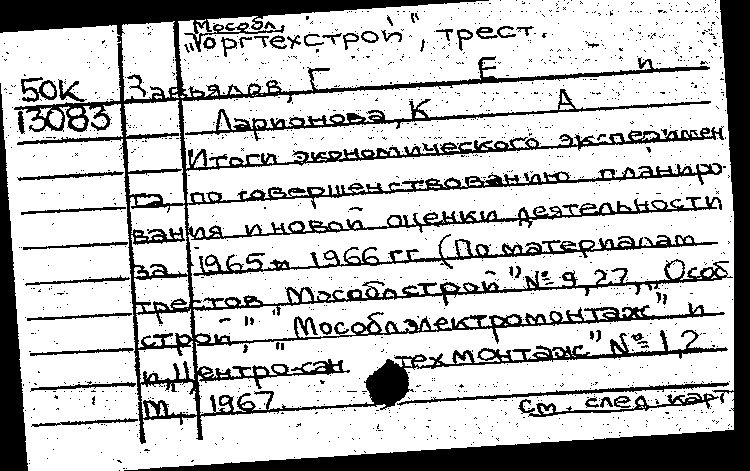 Мособл.
"Оргтехстрой", трест.
50К Завьялов, Г Е и
13083 Ларионова, К А
Итоги экономического эксперимен
та, по совершенствованию планиро
вания и новой оценки деятельности
за 1965 и 1966 гг (По материалам
трестов "Мособлстрой" № 9, 27, "Особ
строй," "Мособлэлектромонтаж" и
"Центро-сан техмонтаж" № 1, 2
М, 1967.
См. след. карт